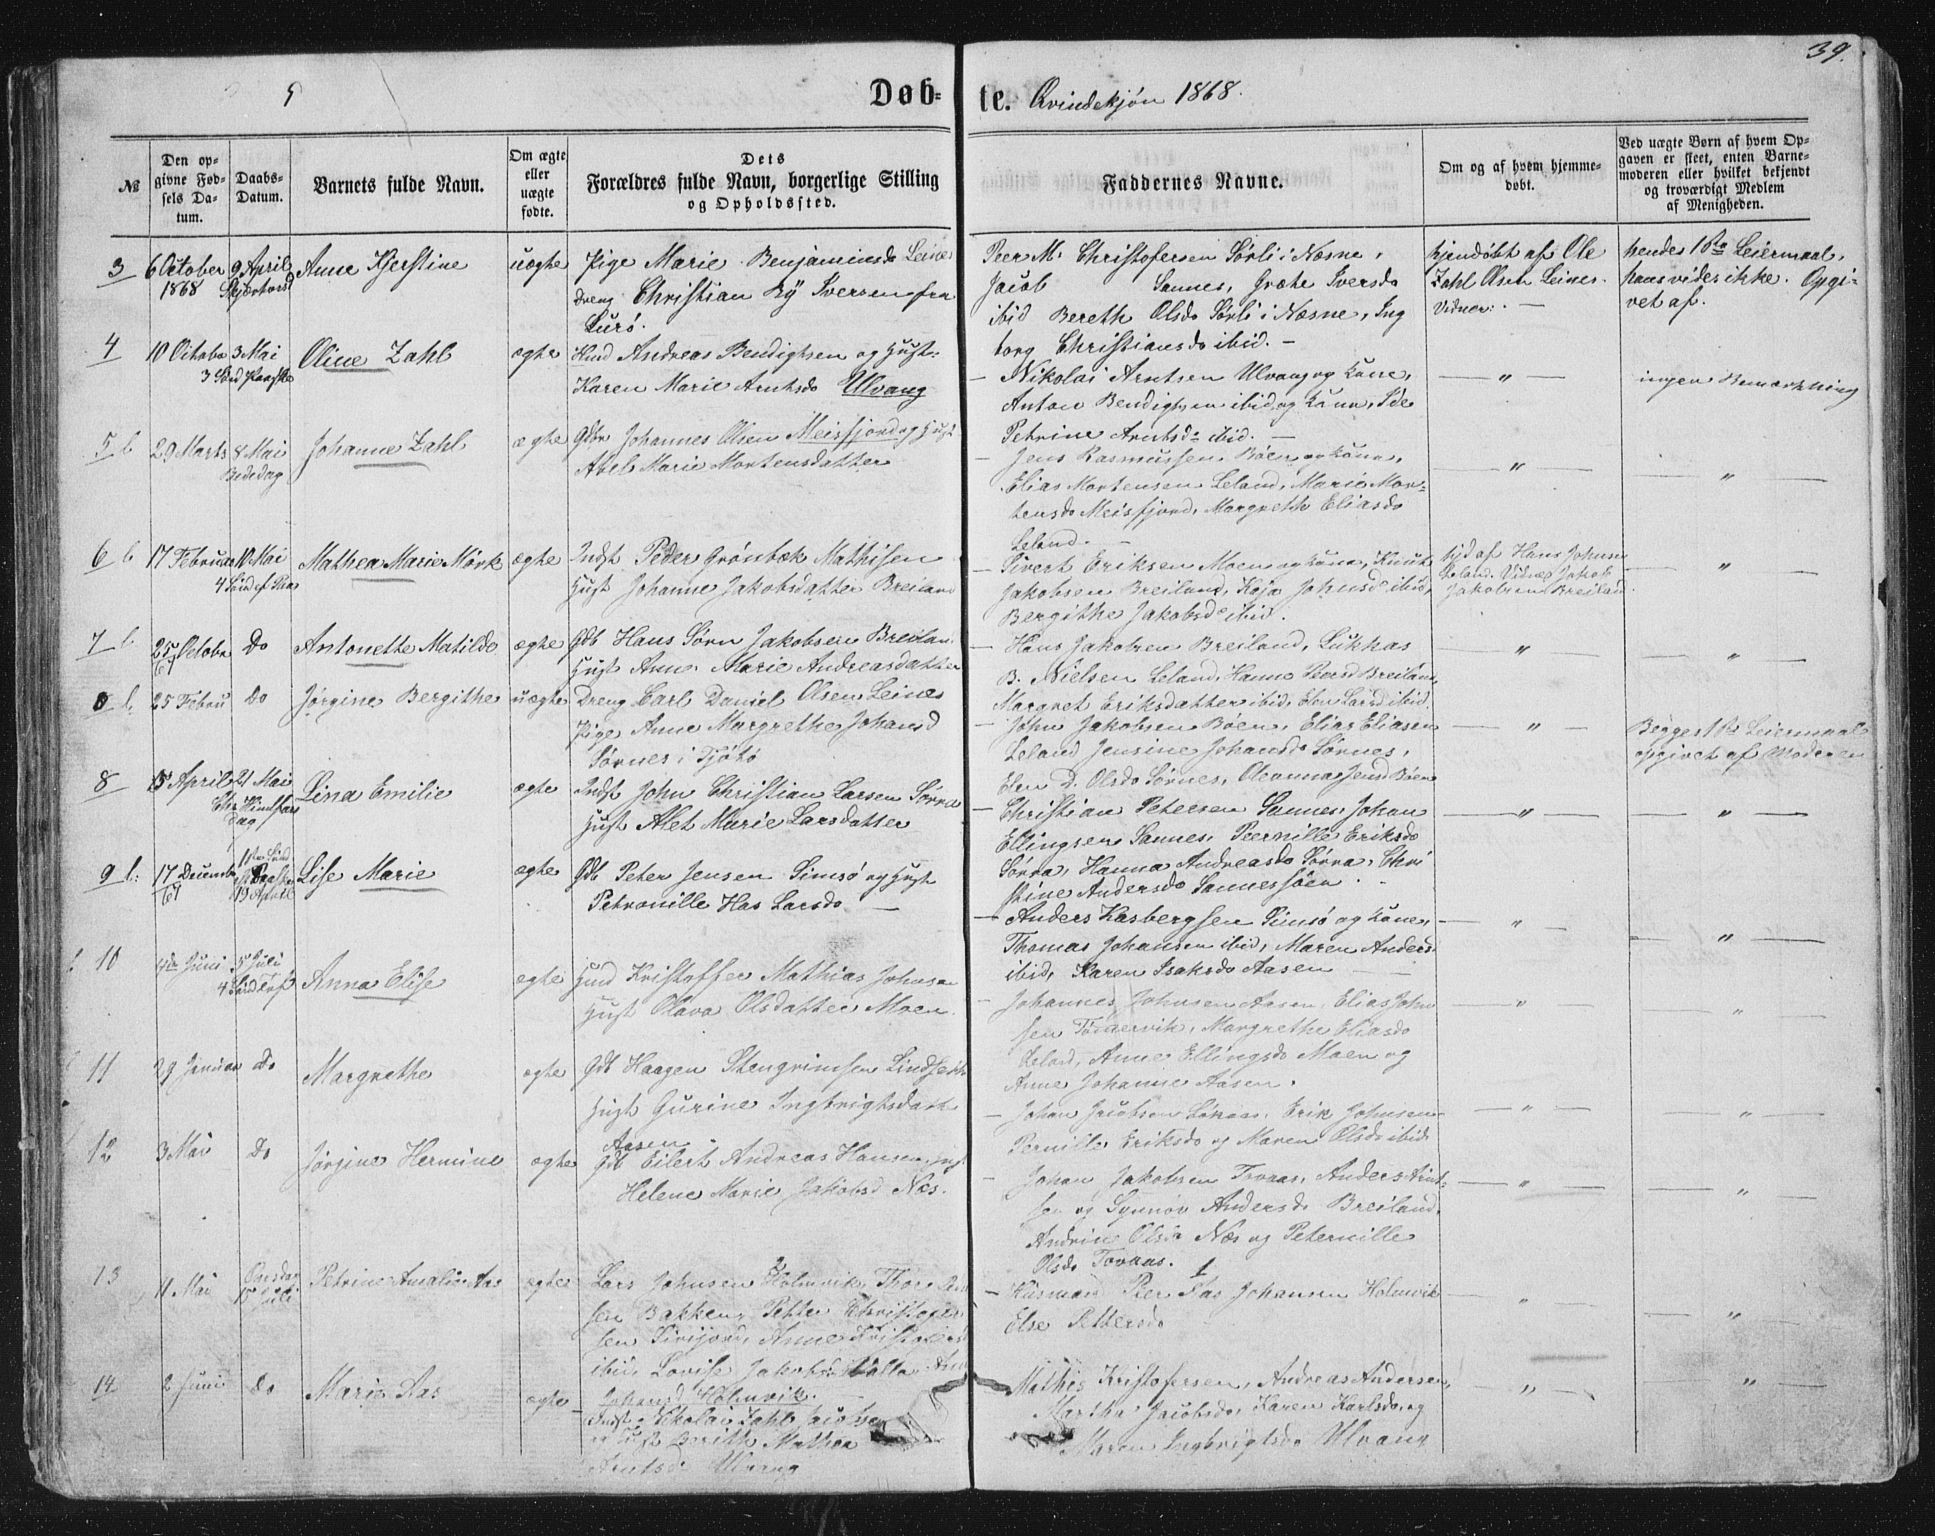 39.
Døb-
te. Qvindekjøn 1868.
№
Den opgivne Fødsels Datum.
Daabs-Datum.
Barnets fulde Navn.
Om ægte eller uægte fødte.
Dets Forældres fulde Navn, borgerlige Stilling og Opholdssted.
Faddernes Navne.
Om og af hvem hjemmedøbt.
Ved uægte Børn af hvem Opgaven er skeet, enten Barnemoderen eller hvilket bekjendt og troværdigt Medlem af Menigheden.
3
6 October 1868
9 April Skjærtorsd
Anne Kjerstine
uægte
Pige Marie Benjaminsd Leines
Dreng Christian By Iversen fra
Lurø.
Peer M. Christofersen Sørli i Næsne,
Jacob Sannes, Grethe Iversd
ibid Bereth Olsd Sørli i Næsne, Ing
borg Christiansd ibid. —
hjemdøbt af Ole
Zahl Olsen Leines.
Vidner: —
hendes 1ste Leiermaal,
hans vides ikke. Opgi-
vet af.
4
10 Octobr
3 Mai
3 Sønd Paaske
Oline Zahl
ægte
Huusd Andreas Bendigtsen og Hust:
Karen Marie Arntsd Ulvang
— Nikolai Arntsen Ulvang og Kone,
Anton Bendigtsen ibid og Kone,
Petrine Arntsd ibid. —
— " —
ingen Bemærkning
5
29 Marts
8 Mai
Bededag
Johanne Zahl
ægte
Gdbr Johannes Olsen Meisfjord og Hust
Abel Marie Mortensdatter
— Jens Rasmussen Bøen og Kone,
Elias Mortensen Leland, Marie Mor-
tensd Meisfjord, Margreth Eliasd
Leland. —
— " —
— " —
6
17 Februar
10 Mai
Mathea Marie Mørk
ægte
Indst Peder Grønbæk Mathisen
Hust Johanne Jakobsdatter Breiland
— Sivert Eriksen Moen og Kone, Knut
Jakobsen Breiland, Kaja Johnsd ibid,
Bergithe Jakobsd ibid.
hjd af Hans Johnsen
Leland. Vidne Jakob
Jakobsen Breiland.
— " —
7
25 Octobr 67
Do
Antonette Matilde
ægte
Gdb Hans Sørn Jakobsen Breilan
Hust Anne Marie Andreasdatter
— Hans Jakobsen Breiland, Lukkas
B. Nielsen Leland, Hanne Peersd Breiland
Margret Eriksdatter ibid, Elen Larsd ibid.
— " —
— " —
25 Febru
Do
Jørgine Bergithe
uægte
Dreng Carl Daniel Olsen Leines
Pige Anne Margrethe Johansd
Sørnes i Tjøtø
— John Jakobsen Bøen, Elias Eliasen
Leland Jensine Johansd Sørnes,
Elen D. Olsd Sørnes, Oleanna Jensd Bøen
— " —
Begges 1ste Leiermaal
opgivet af Moderen
8
15 April
21 Mai
Chr Himlfars
dag
Lina Emilie
ægte
Indst John Christian Larsen Sørra
Hust Alet Marie Larsdatter
— Christian Petersen Sannes, Johan
Ellingsen Sannes, Peernille Eriksd
Sørra, Hanna Andreasd Sørra, Chri
stine Andersd Sannessøen.
— " —
— " —
9
17 Decembr 67
19 April
Lise Marie
ægte
Gdb Peter Jensen Simsø og Hust
Petronille Has Larsd —
— Anders Kasbergsen Simsø og Kone,
Thomas Johansen ibid, Maren Andersd
ibid, Karen Isaksd Aasen —
— " —
— " —
10
4de Juni
5 Juli
Anna Elise
ægte
Huusd Kristoffer Mathias Johnsen
Hust Olava Olsdatter Moen.
— Johannes Johnsen Aasen, Elias John
sen Tømmervik, Margrethe Eliasd
Leland, Anne Ellingsd Moen og
Anne Johanne Aasen.
— " —
— " —
11
29 Januar
Do
Margrethe
ægte
Gdb Haagen Stengrimsen Lindseth
Hust Gurine Ingbrigtsdatt
Aasen
— Johan Jacobsen Løkaas, Erik Johnsen
Pernille Eriksd og Maren Olsd ibid
— " —
— " —
12
3 Mai
Do
Jørgine Hermine
ægte
Gdb Eilert Andreas Hansen, Hust
Helene Marie Jakobsd Næs.
— Johan Jakobsen Tovaas, Anders Arnt-
sen og Synnøv Andersd Breiland,
Andrin Olsd Næs og Peternille
Olsd Tovaas.
— " —
— " —
13
11 Mai
Onsdag
15 Juli
Petrine Amalie Aas
ægte
Lars Johnsen Holmvik, Thore
sen Bakken, Petter Christofer
sen, Anne Kristofersd
ibid, Lovise Jakobsd
Johansd Holmvik. —
— Husmand Peer Aas Johansen Holmvik
Else Pettersd
— " —
— " —
14
2 Juni
Do
Marie Aas
ægte
Indst Nikolai Zahl Jacobsen
og Hust Berith Mathea
Arntsd Ulvang
Mathis Kristofersen, Andreas Andersen,
Martha Jacobsd, Karen Karlsd og
Maren Ingbrigtsd Ulvang
— " —
— " —